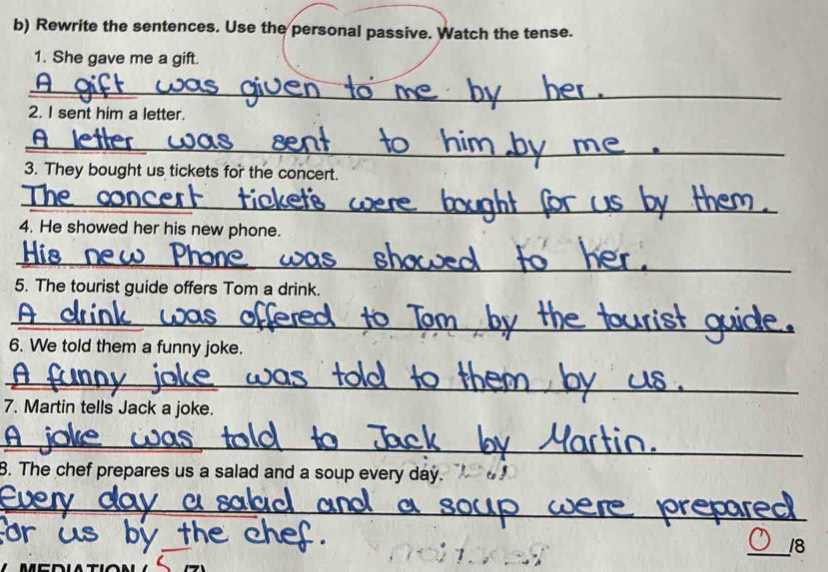 b) Rewrite the sentences. Use the personal passive. Watch the tense.
1. She gave me a gift.
A gift was given to me by her.
2. I sent him a letter.
A letter was sent to him by me.
3. They bought us tickets for the concert.
The concert ticket's were bought for us by them.
4. He showed her his new phone.
His new Phone was showed to her.
5. The tourist guide offers Tom a drink.
A drink was offered to Tom by the tourist guide.
6. We told them a funny joke.
A funny joke was told to them by us.
7. Martin tells Jack a joke.
A joke was told to Jack by Martin.
8. The chef prepares us a salad and a soup every day.
Every day a salad and a soup were prepared
for us by the chef.
0/8
MEDIATION ( 5 /7)